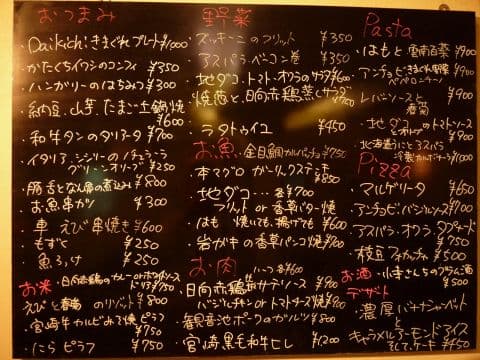 おつまみ
・Daikichi きまぐれプレート ¥1000
・かたくちイワシのコンフィ ¥350
・ハンガリーのはちみつ ¥300
・納豆、山芋、たまご土鍋焼 ¥600
・和牛タンのタリアータ ¥700
・イタリア、シシリーの
グリーンオリーブ ¥250
・豚舌となん骨の煮込み ¥800
・お魚串カツ ¥300
・車えび串焼き ¥600
・もずく ¥250
・魚ろっけ ¥250
お米
・日向赤鶏のカレー or ホワイトソース
ドリア ¥750
・えびと春菊のリゾット ¥800
・宮崎牛カルビみそ焼ピラフ ¥750
・にらピラフ ¥750
野菜
・ズッキーニのフリット ¥350
・アスパラ・ベーコン巻 ¥350
・地ダコ、トマト、オクラのサラダ ¥600
・焼茄と、日向赤鶏蒸しサラダ ¥700
・ラタトゥイユ ¥450
お魚
・金目鯛カルパッチョ ¥750
・本マグロ ガーリックステーキ ¥850
・地ダコ… 各¥700
フリット or 香草バター焼
・はも 焼いても、揚げても ¥600
・岩ガキの香草パンコ焼 ¥700
お肉
ハーフ 各¥600
・日向赤鶏 串サテソース ¥900
バジルチキン or トマトチーズ焼 ¥900
・観音池ポークのガルツ ¥800
・宮崎黒毛和牛ヒレ ¥1200
Pasta
・はもと雲南百菜 ¥900
・アンチョビときまぐれ野菜
ペペロンチーノ ¥900
・レバンソーストと
春菊 ¥900
・地ダコのトマト
とオリーブ ¥900
・北海道うにとアスパラ
冷製カルボナーラ ¥1000
Pizza
・マルゲリータ ¥650
・アンチョビ・バジルソース ¥700
・アスパラ、オクラ、タプナード ¥750
・枝豆フォカッチャ ¥500
お酒
・小寺さんちのプラム酒 ¥500
デザート
・濃厚バナナシャーベット
と
・キャラメルアーモンドアイス
そしてケーキ ¥450